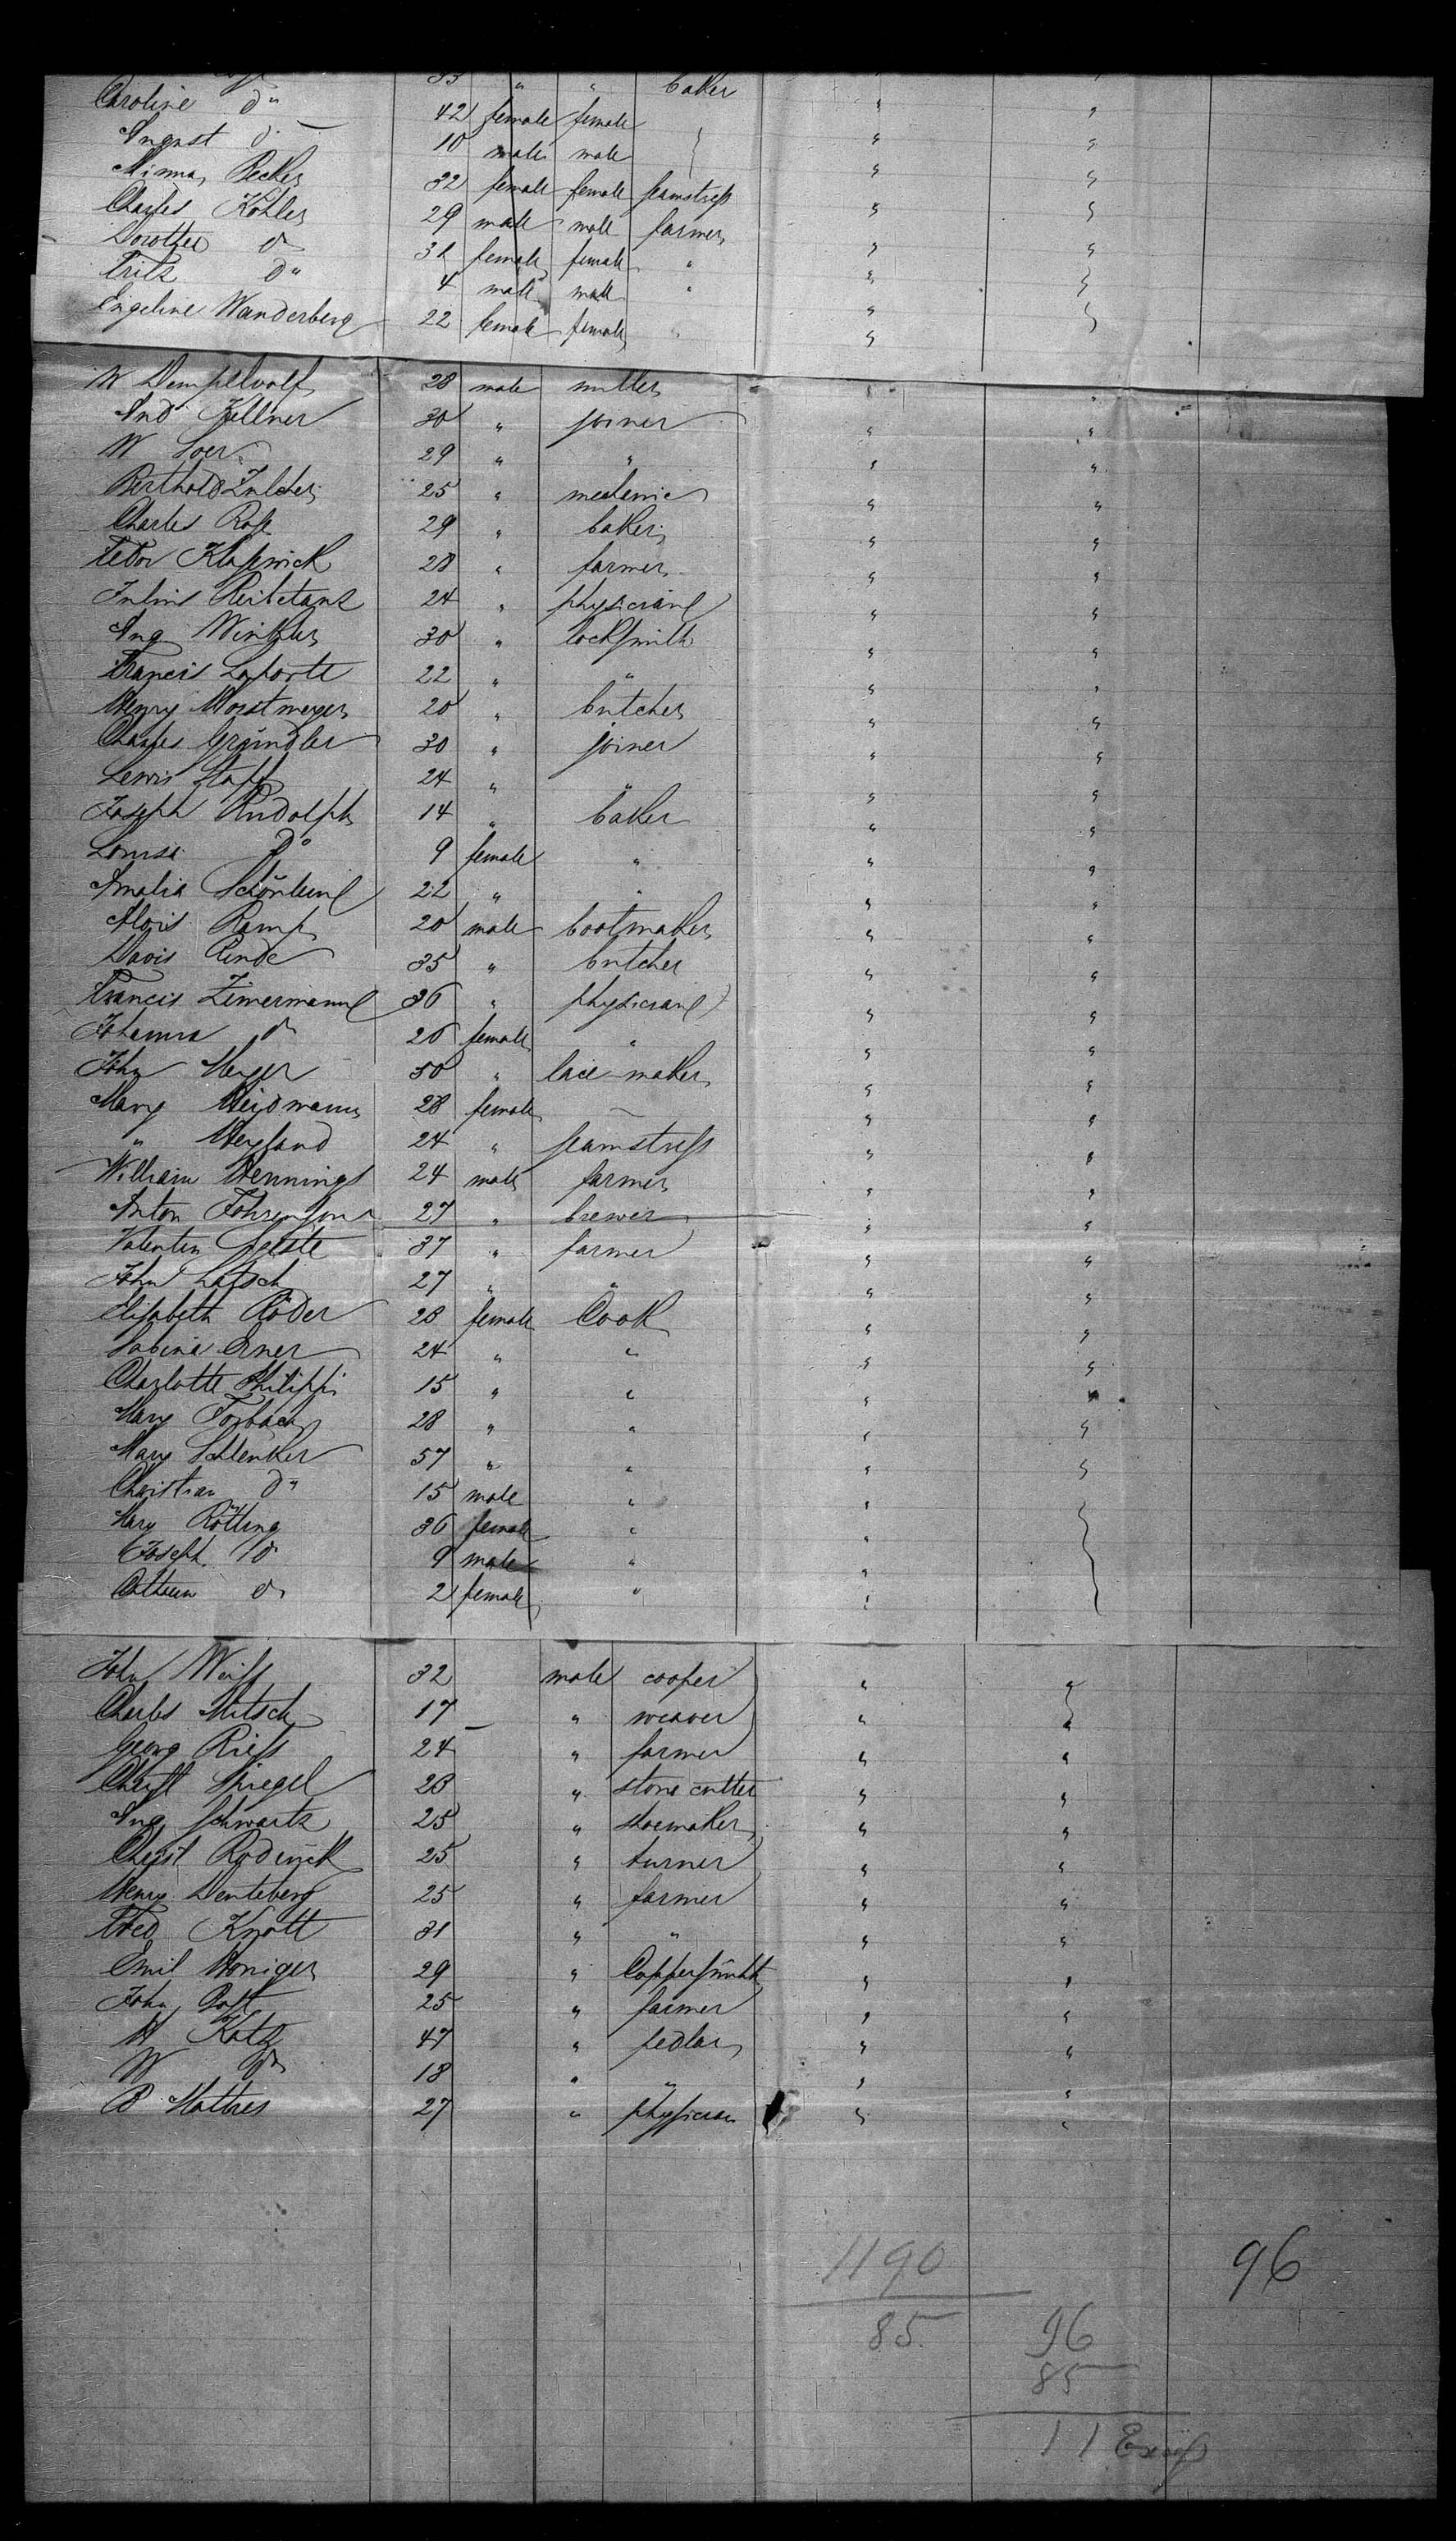 33 " " baker
Caroline do 42 female female " "
August do 10 male male " "
Minna Becker 32 female female seamstress " "
Charles Köhler 29 male male farmer " "
Dorothee do 31 female female " " "
Fritz do 4 male male " " "
Engeline Wanderberg 22 female female " "
W Dempelwolf 28 male miller " "
And Kellner 30 " joiner " "
W Soer 29 " " " "
Berthold Zulcher 25 " mechanic " "
Charles Rose 29 " baker " "
Fedor Klapwick 28 " farmer " "
Julius Reibetanz 24 " physician " "
Aug Winkler 30 " locksmith " "
Francis Laporte 22 " " " "
Henry Horstmeyer 20 " butcher " "
Charles Gründler 30 " joiner " "
Lewis Staff 24 " " " "
Joseph Rudolph 14 " baker " "
Louisa Do 9 female " " "
Amalia Schönlein 22 " " " "
Alois Ramp 20 male bootmaker " "
David Rinde 35 " butcher " "
Francis Zimermann 36 " physician " "
Johanna do 26 female " " "
John Meyer 30 " lace-maker " "
Mary Weidmann 28 female — " "
" Weyland 24 " seamstress " "
William Hennings 24 male farmer " "
Anton 27 " brewer " "
Valentin Seiste 37 " farmer " "
John Latsch 27 " " " "
Elisabeth Röder 28 female Cook " "
Sabina Erner 24 " " " "
Charlotte Philippi 15 " " " "
Mary Forbach 28 " " " "
Mary Schlenker 57 " " " "
Christian do 15 male " "
Mary Rötting 36 female " "
Joseph do 9 male " "
Cathrin do 2 female " "
John Weiss 32 male cooper " "
Charles Mitsch 17 " weaver " "
Georg Riess 24 " farmer " "
Christ Spiegel 28 " stone cutter " "
Aug Schwartz 25 " shoemaker " "
Christ Rodenick 25 " turner " "
Henry Denteberg 25 " farmer " "
Fred Knott 31 " " " "
Emil Honiger 29 " Coppersmith " "
John Post 25 " farmer " "
H Katz 47 " pedlar " "
W do 18 " " " "
B Mattres 27 " physician " "
1190
96
85
96
85
11 Excess